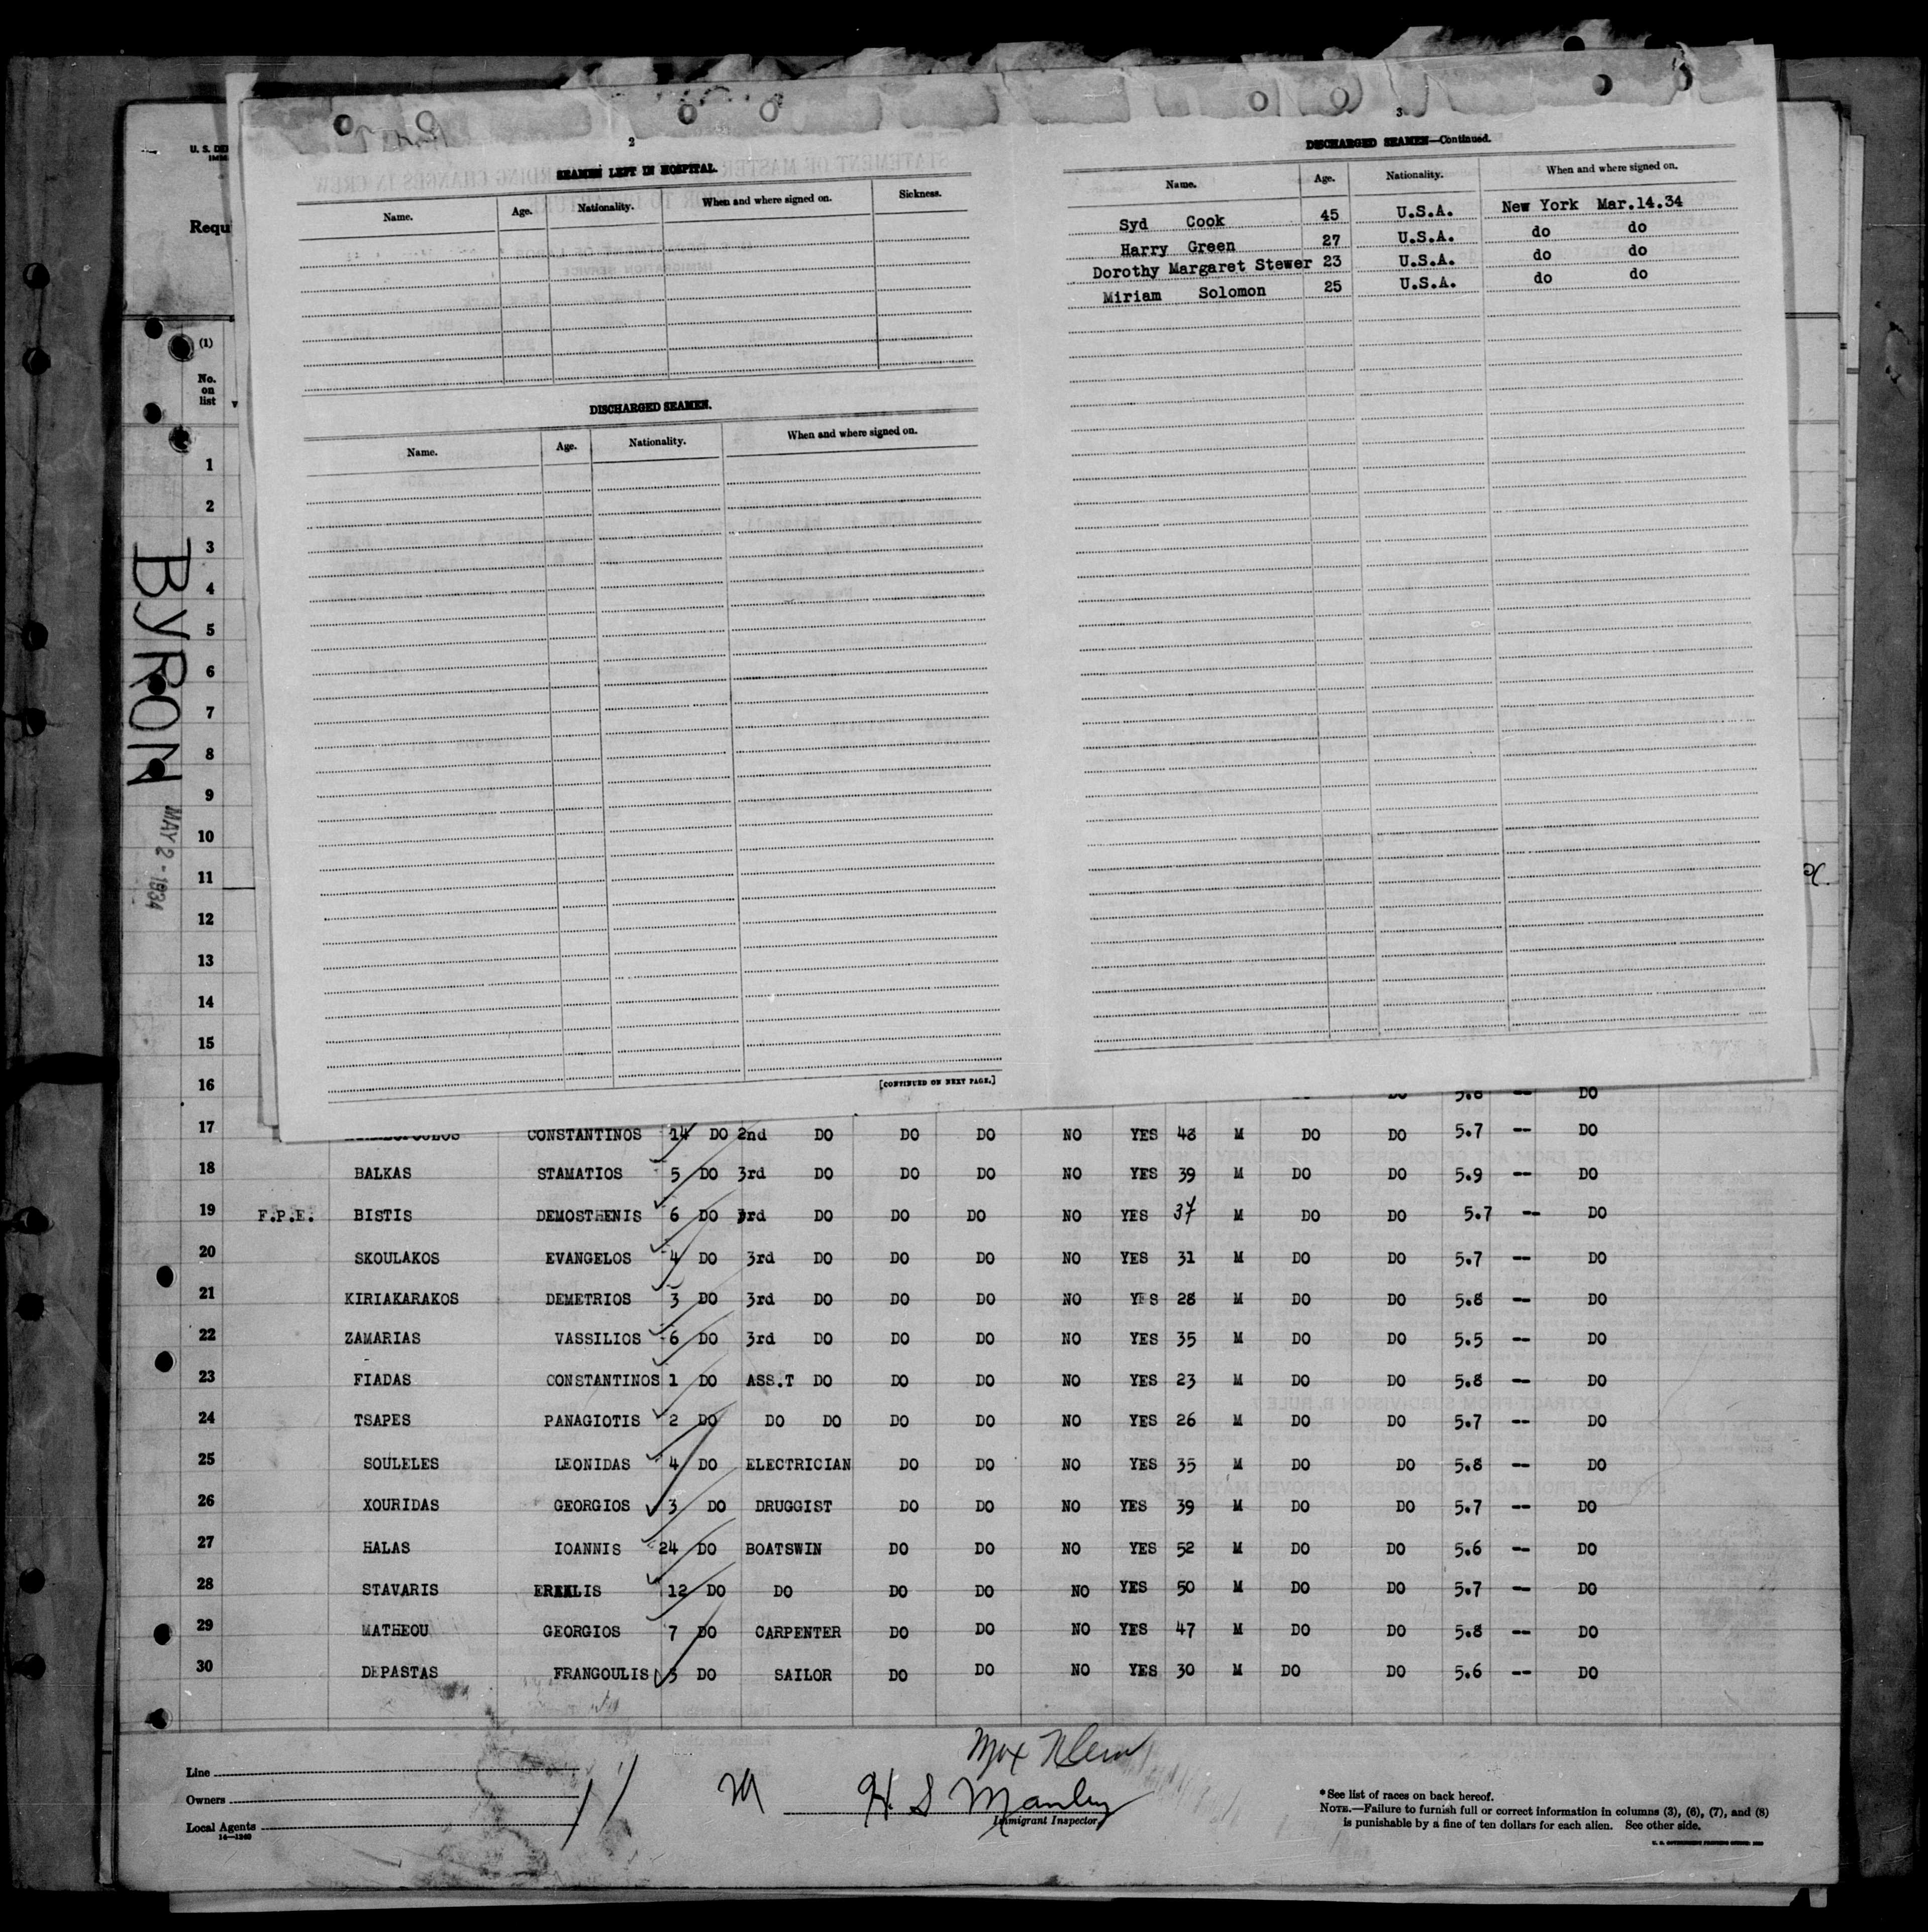 2
SEAMEN LEFT IN HOSPITAL.
Name. Age. Nationality. When and where signed on. Sickness.
DISCHARGED SEAMEN.
Name. Age. Nationality. When and where signed on.
[CONTINUED ON NEXT PAGE.]
3
DISCHARGED SEAMEN—Continued.
Name. Age. Nationality. When and where signed on.
Syd Cook 45 U.S.A. New York Mar.14.34
Harry Green 27 U.S.A. do do
Dorothy Margaret Stewer 23 U.S.A. do do
Miriam Solomon 25 U.S.A. do do
U. S. DE
Requ
(1)
No. on list
BYRON
MAY 2 - 1934
1
2
3
4
5
6
7
8
9
10
11
12
13
14
15
16 DO 5.8 -- DO
17 CONSTANTINOS 14 DO 2nd DO DO DO NO YES 43 M DO DO 5.7 -- DO
18 BALKAS STAMATIOS 5 DO 3rd DO DO DO NO YES 39 M DO DO 5.9 -- DO
19 F.P.E. BISTIS DEMOSTHENIS 6 DO 3rd DO DO DO NO YES 37 M DO DO 5.7 -- DO
20 SKOULAKOS EVANGELOS 4 DO 3rd DO DO DO NO YES 31 M DO DO 5.7 -- DO
21 KIRIAKARAKOS DEMETRIOS 3 DO 3rd DO DO DO NO YES 28 M DO DO 5.8 -- DO
22 ZAMARIAS VASSILIOS 6 DO 3rd DO DO DO NO YES 35 M DO DO 5.5 -- DO
23 FIADAS CONSTANTINOS 1 DO ASS.T DO DO DO NO YES 23 M DO DO 5.8 -- DO
24 TSAPES PANAGIOTIS 2 DO DO DO DO DO NO YES 26 M DO DO 5.7 -- DO
25 SOULELES LEONIDAS 4 DO ELECTRICIAN DO DO NO YES 35 M DO DO 5.8 -- DO
26 XOURIDAS GEORGIOS 3 DO DRUGGIST DO DO NO YES 39 M DO DO 5.7 -- DO
27 HALAS IOANNIS 24 DO BOATSWIN DO DO NO YES 52 M DO DO 5.6 -- DO
28 STAVARIS 12 DO DO DO DO NO YES 50 M DO DO 5.7 -- DO
29 MATHEOU GEORGIOS 7 DO CARPENTER DO DO NO YES 47 M DO DO 5.8 -- DO
30 DEPASTAS FRANGOULIS 3 DO SAILOR DO DO NO YES 30 M DO DO 5.6 -- DO
Line
Owners
Local Agents
14—1240
Max Klein
H S Manley
Immigrant Inspector
* See list of races on back hereof.
NOTE.—Failure to furnish full or correct information in columns (3), (6), (7), and (8)
is punishable by a fine of ten dollars for each alien. See other side.